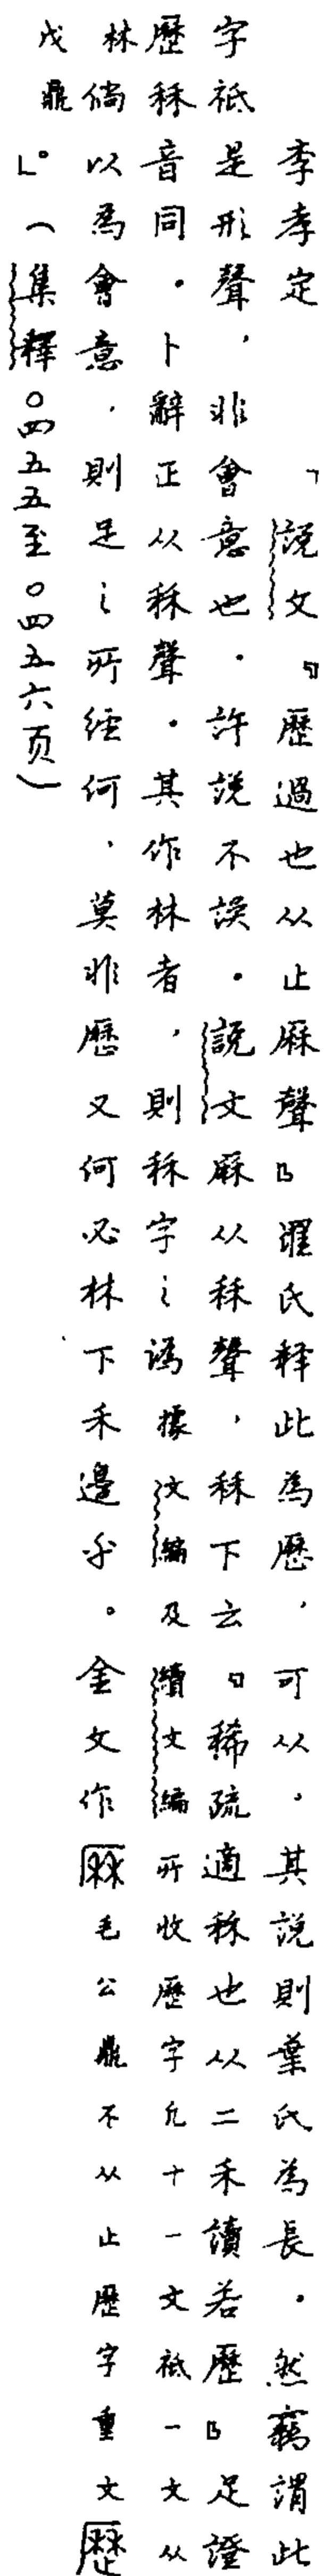 李孝定　「說文『歷過也从止厤聲』羅氏释此為歷，可从。其說則葉氏為長。然竊謂此
字祇是形聲，非會意也。許說不誤。說文厤从秝聲，秝下云『稀疏適秝也从二禾讀若歷』足證
歷秝音同。卜辭正从秝聲。其作林者，則秝字之譌據文編及續文編所收歷字凡十一文祇一文从
林倘以為會意，則足之所經何，莫非歷又何必林下禾邊乎。金文作毛公鼎不从止歷字重文
戊鼎」。（集釋〇四五五至〇四五六页）